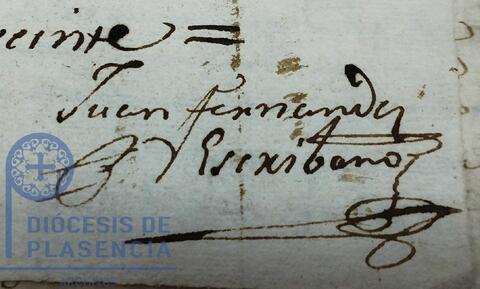 veinte =
Juan Fernandez
Escribano
DIÓCESIS DE
PLASENCIA
ARCHIVO